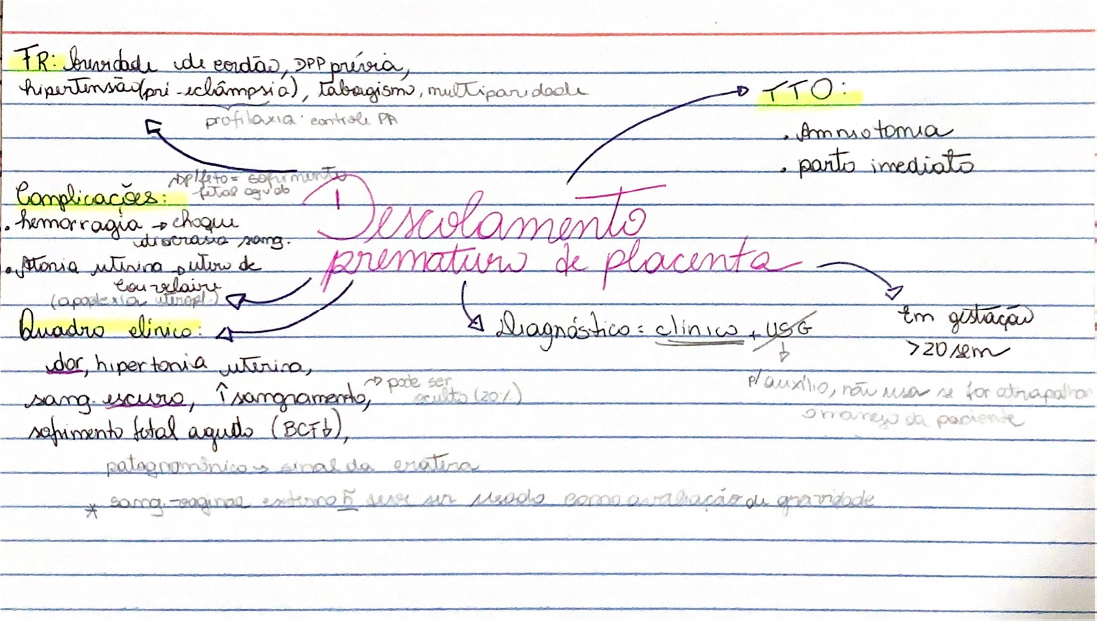 FR: brevidade de cordão, DPP prévia,
hipertensão (pré-eclâmpsia), tabagismo, multiparidade
profilaxia: controle PA
TTO:
. Amniotomia
. parto imediato
p/ feto = sofrimento
fetal agudo
Complicações:
. hemorragia → choque
discrasia sang.
. Atonia uterina, útero de
Couvelaire
(apoplexia uteropl.)
Descolamento
prematuro de placenta
Em gestação
>20 sem
Diagnóstico = clínico, USG
↓
p/ auxílio, não usa se for atrapalhar
o manejo da paciente
Quadro clínico:
dor, hipertonia uterina,
sang. escuro, ↑sangramento,
→ pode ser
oculto (20%)
sofrimento fetal agudo (BCF↓),
patognomônico → sinal da cratera
* sang. vaginal externo ñ deve ser usado como avaliação de gravidade